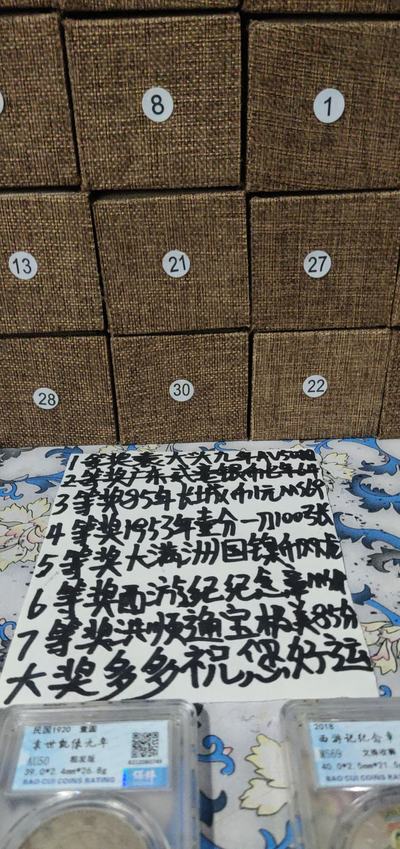 8
1
13
21
27
28
30
22
1等奖袁大头九年AU50
2等奖广东
3等奖85年长城币1元MS69
4等奖1953年壹分一刀100张
5等奖大满洲国镍币双龙
6等奖西游纪纪念章MS
7等奖洪顺通宝极美85分
大奖多多祝您好运
民国1920 壹圆
袁世凯像九年
AU50 精发版
39.0*2.4mm*26.8g
BAO CUI COINS RATING
2018
西游记纪念章
MS69
40.0*2.5mm*21.5
BAO CUI COINS RATING